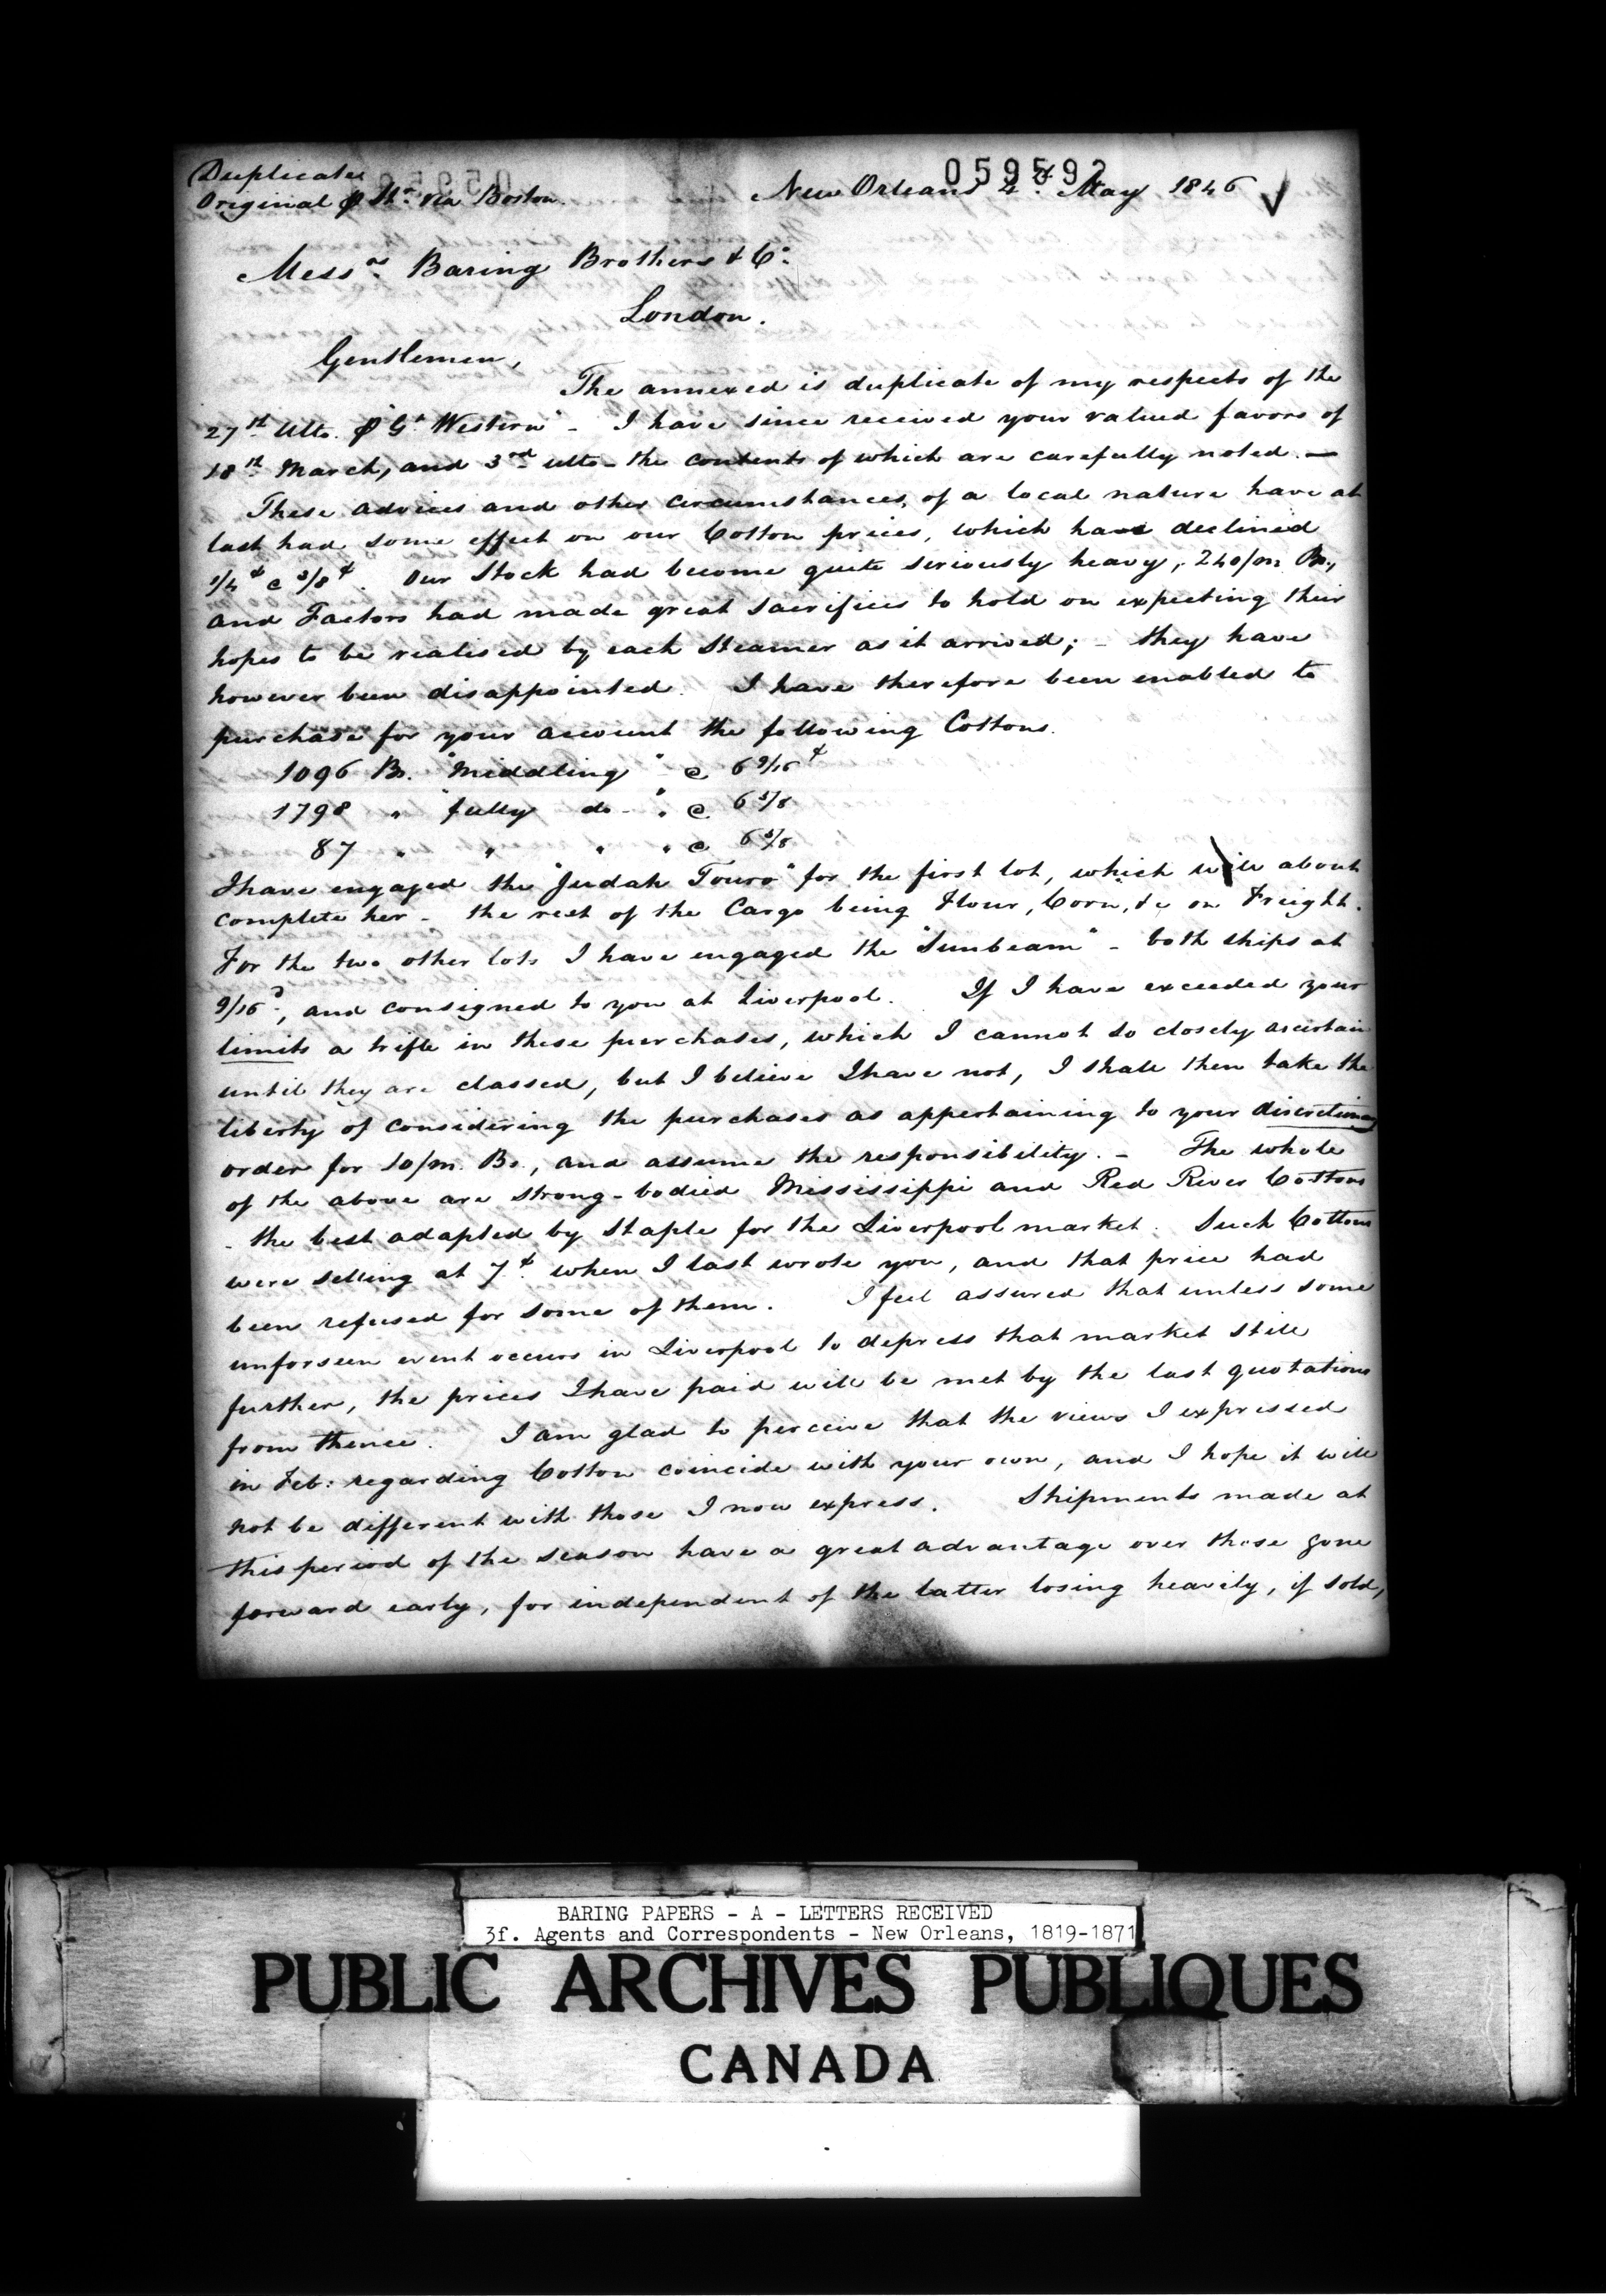 Duplicate
059592
Original ⅌ Str. via Boston.
New Orleans 4th May 1846
Messrs. Baring Brothers & Co.
London.
Gentlemen,
The annexed is duplicate of my respects of the
27th Ulto. ⅌ "Gt. Western" - I have since received your valued favors of
18th March, and 3rd ulto - the contents of which are carefully noted. —
These advices and other circumstances, of a local nature have at
last had some effect on our Cotton prices, which have declined
1/4¢ @ 3/8¢. Our Stock had become quite seriously heavy, 240/m Bs.,
and Factors had made great sacrifices to hold on expecting their
hopes to be realised by each Steamer as it arrived; - they have
however been disappointed. I have therefore been enabled to
purchase for your account the following Cottons.
1096 Bs. "Middling" @ 6 9/16¢
1798 " "fully do - " " @ 6 5/8
87 " " " " @ 6 5/8
I have engaged the "Judah Touro" for the first lot, which will about
complete her - the rest of the Cargo being Flour, Corn, &c on Freight.
For the two other lots I have engaged the "Sunbeam" - both ships at
9/16d, and consigned to you at Liverpool. If I have exceeded your
limits a trifle in these purchases, which I cannot so closely ascertain
until they are classed, but I believe I have not, I shall then take the
liberty of considering the purchases as appertaining to your discretionary
order for 10/m. Bs., and assume the responsibility. - The whole
of the above are strong-bodied Mississippi and Red River Cottons
- the best adapted by staple for the Liverpool market. Such Cottons
were selling at 7¢ when I last wrote you, and that price had
been refused for some of them. I feel assured that unless some
unforseen event occurs in Liverpool to depress that market still
further, the prices I have paid will be met by the last quotations
from thence. I am glad to perceive that the views I expressed
in Feb: regarding Cotton coincide with your own, and I hope it will
not be different with those I now express. Shipments made at
this period of the season have a great advantage over those gone
forward early, for independent of the latter losing heavily, if sold,
BARING PAPERS - A - LETTERS RECEIVED
3f. Agents and Correspondents - New Orleans, 1819-1871
PUBLIC ARCHIVES PUBLIQUES
CANADA